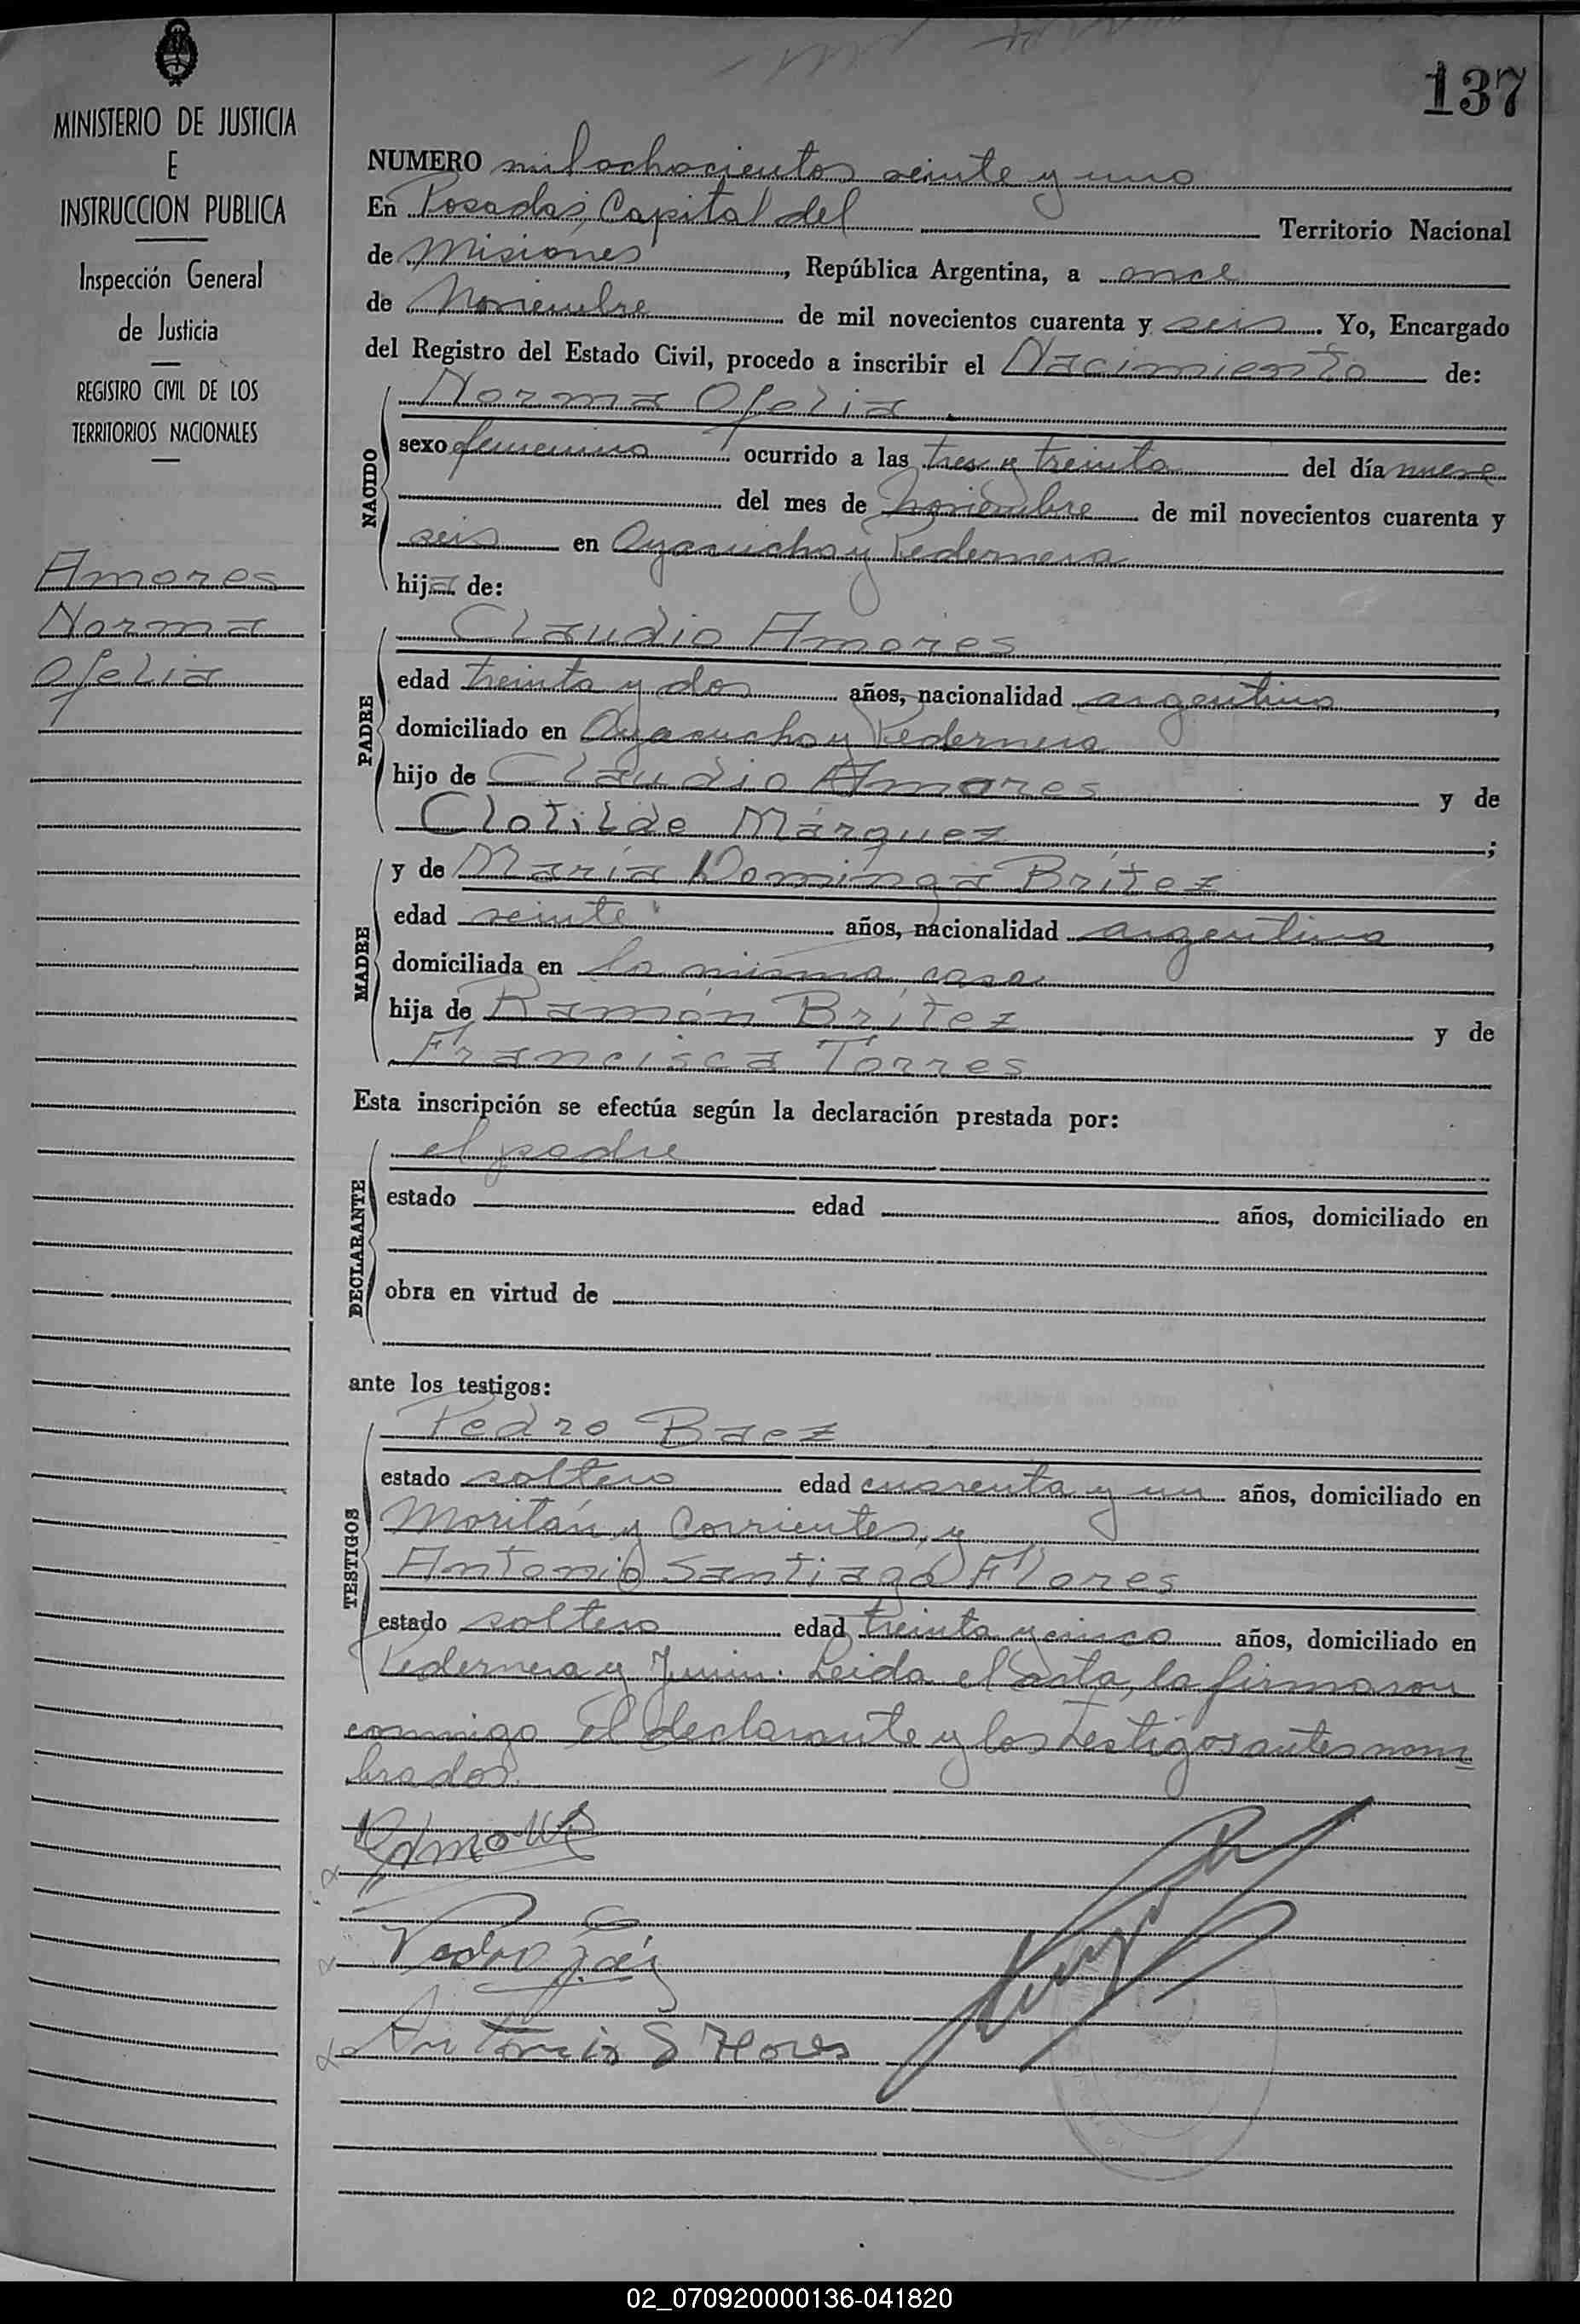 137
MINISTERIO DE JUSTICIA
E
INSTRUCCION PUBLICA
Inspección General
de Justicia
REGISTRO CIVIL DE LOS
TERRITORIOS NACIONALES
Amores
Norma
Ofelia
NUMERO mil ochocientos veinte y uno
En Posadas, Capital del Territorio Nacional
de Misiones, República Argentina, a once
de Noviembre de mil novecientos cuarenta y seis. Yo, Encargado
del Registro del Estado Civil, procedo a inscribir el Nacimiento de:
NACIDO
Norma Ofelia
sexo femenino ocurrido a las tres y treinta del día nueve
del mes de Noviembre de mil novecientos cuarenta y
seis en Ayacucho y Pedernera
hija de:
PADRE
Claudio Amores
edad treinta y dos años, nacionalidad argentino,
domiciliado en Ayacucho y Pedernera
hijo de Claudio Amores y de
Clotilde Márquez;
MADRE
y de María Dominga Brítez
edad veinte años, nacionalidad argentina,
domiciliada en la misma casa
hija de Ramón Brítez y de
Francisca Torres
Esta inscripción se efectúa según la declaración prestada por:
DECLARANTE
el padre
estado edad años, domiciliado en
obra en virtud de
ante los testigos:
TESTIGOS
Pedro Baez
estado soltero edad cuarenta y un años, domiciliado en
Moritán y Corrientes, y
Antonio Santiago Flores
estado soltero edad treinta y cinco años, domiciliado en
Pedernera y Junin. Leida el acta, la firmaron
conmigo el declarante y los testigos antes nom
brados.
Pedro
Antonio S Flores
02_070920000136-041820